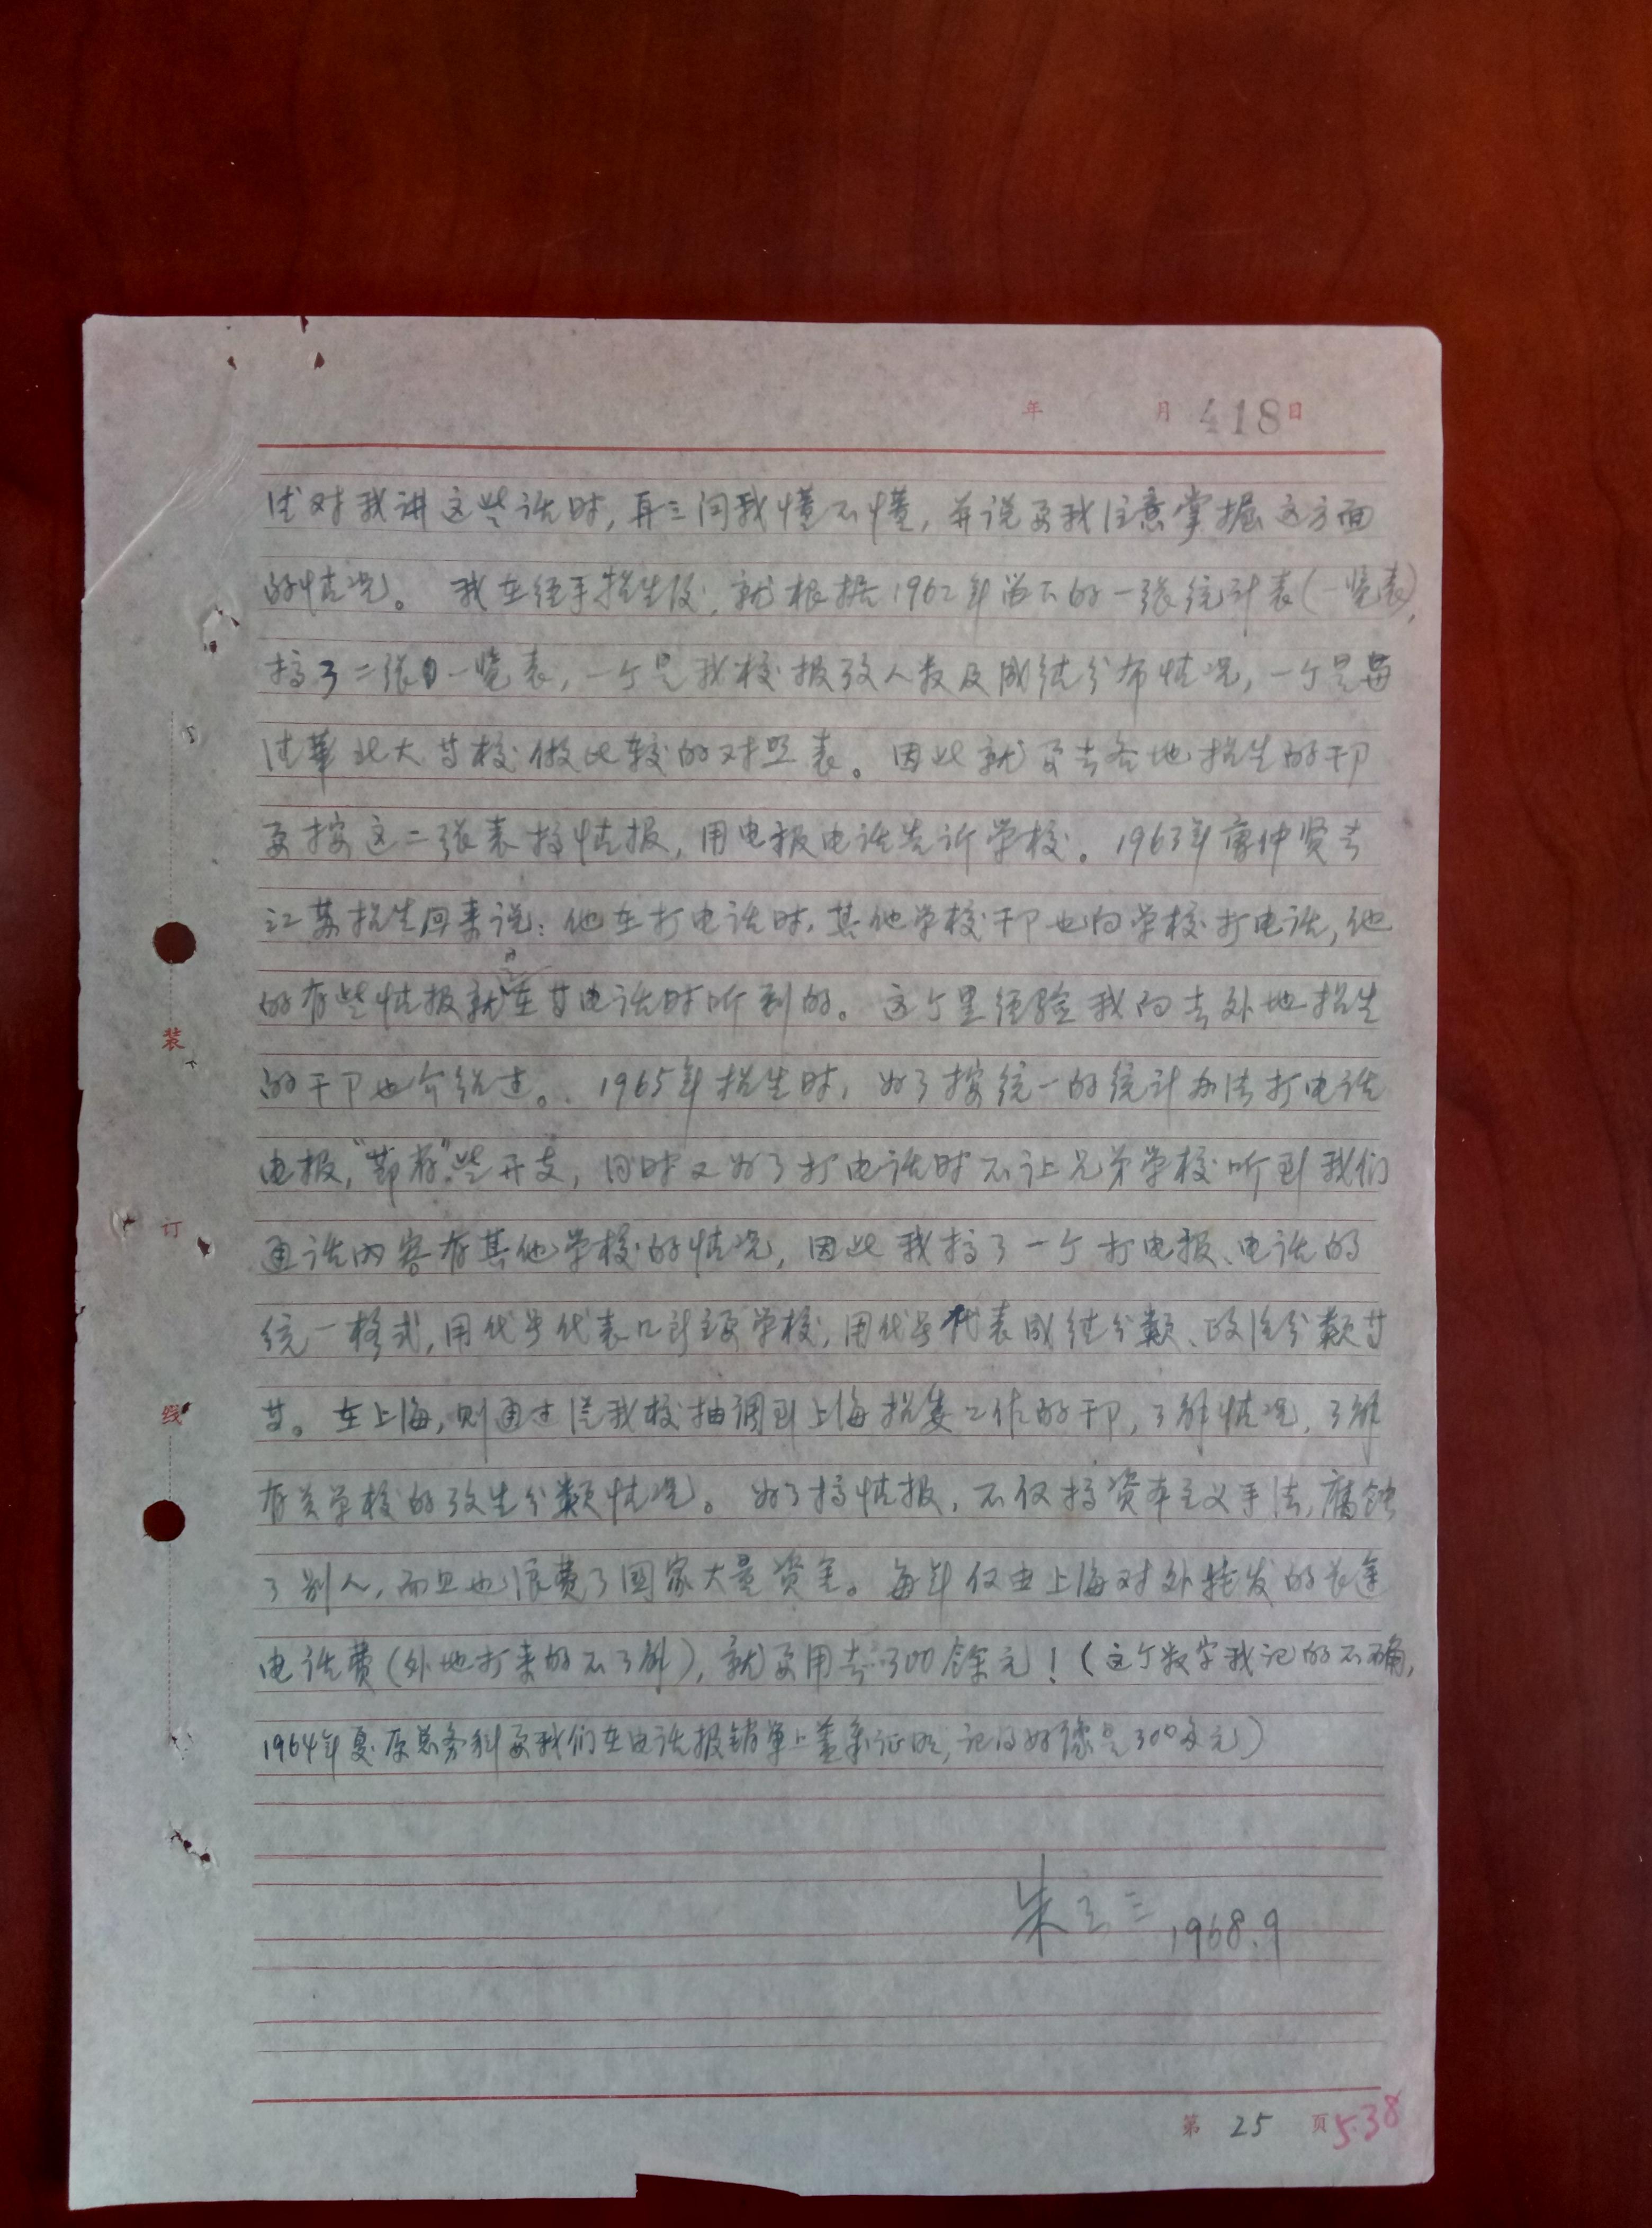 年 月 418 日
对我讲这些话时，再三问我懂不懂，并说要我注意掌握这方面
的情况。 我在经手招生后，就根据1962年留下的一张统计表（一览表），
搞了二张一览表，一个是我校报考人数及成绩分布情况，一个是与
清华北大等校做比较的对照表。因此就要去各地招生的干卩
要按这二张表搞情报，用电报电话告诉学校。1963年仲贤去
江苏招生回来说：他在打电话时，其他学校干卩也向学校打电话，他
的有些情报就是在等电话时听到的。这个黑经验我向去外地招生
的干卩也介绍过。 1965年招生时，为了按统一的统计办法打电话
电报，“节省”些开支，同时又为了打电话时不让兄弟学校听到我们
通话内容有其他学校的情况，因此我搞了一个打电报、电话的
统一格式，用代号代表几所主要学校，用代号代表成绩分类、政治分类等
等。在上海，则通过从我校抽调到上海招委工作的干卩，了解情况，了解
有关学校的考生分类情况。为了搞情报，不仅搞资本主义手法，腐蚀
了别人，而且也浪费了国家大量资金。每年仅由上海对外转发的长途
电话费（外地打来的不了解），就要用去300余元！（这个数字我记的不确，
1964年夏原总务科要我们在电话报销单上盖章证明，记得好像是300多元）
朱立三 1968.9
装
订
线
第 25 页 538